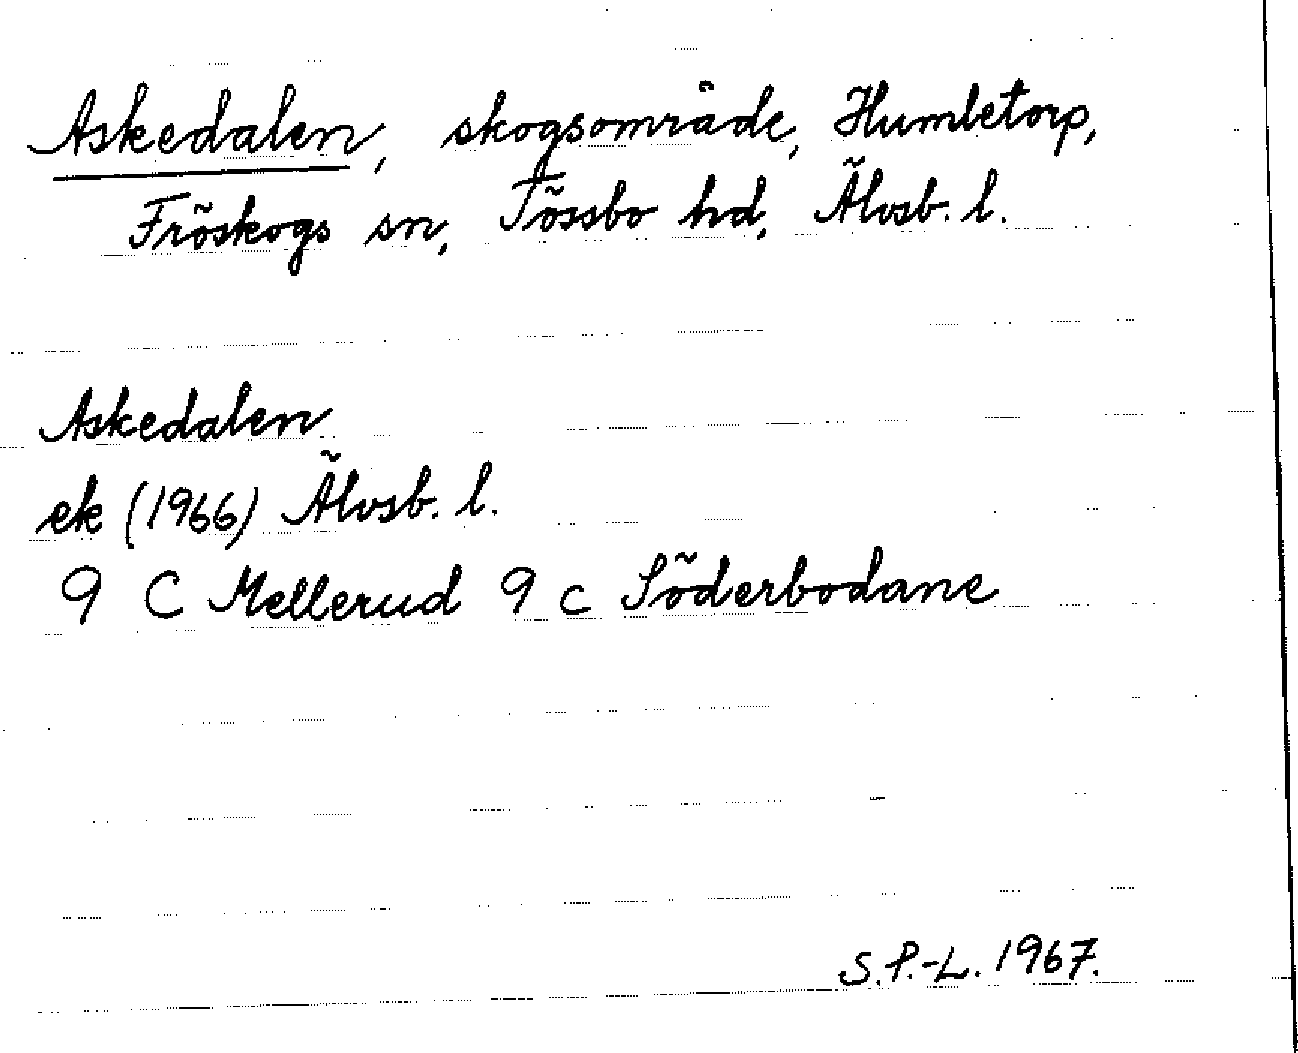 Askedalen, skogsområde, Humletorp,
Fröskogs sn, Tössbo hd, Älvsb. l.
Askedalen
ek (1966) Älvsb. l.
9 C Mellerud 9 c Söderbodane
S.P.-L. 1967.